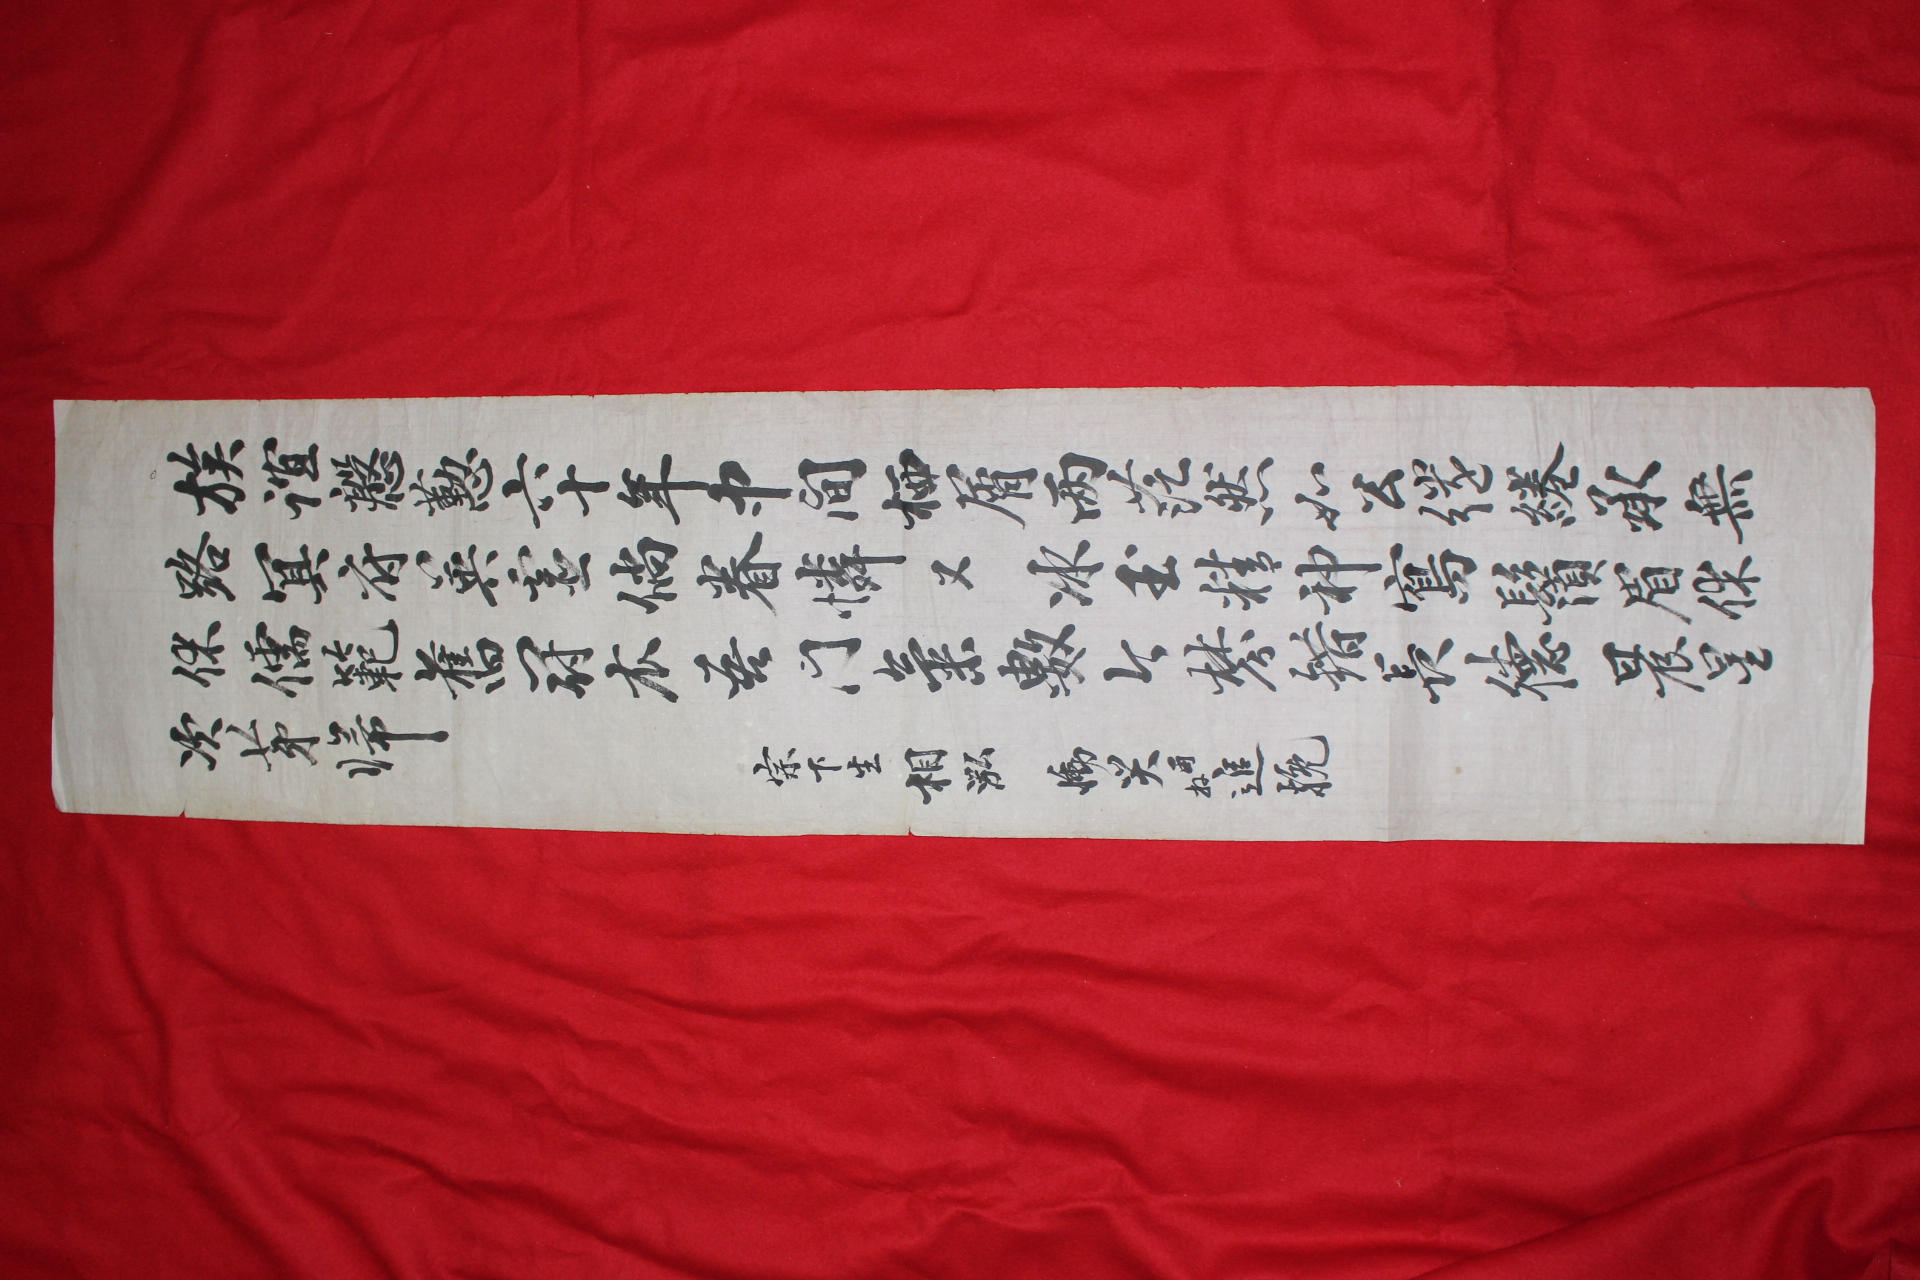 族誼慇懃六十年中間栖屑兩茫然如公繾綣承無
路冥府英靈倘眷憐又 冰玉精神寫鬚眉休
休儒範舊冠衣吾門氣數今棼錯長德晨星
次苐歸
宗下生 相泓 慟哭再拜追輓